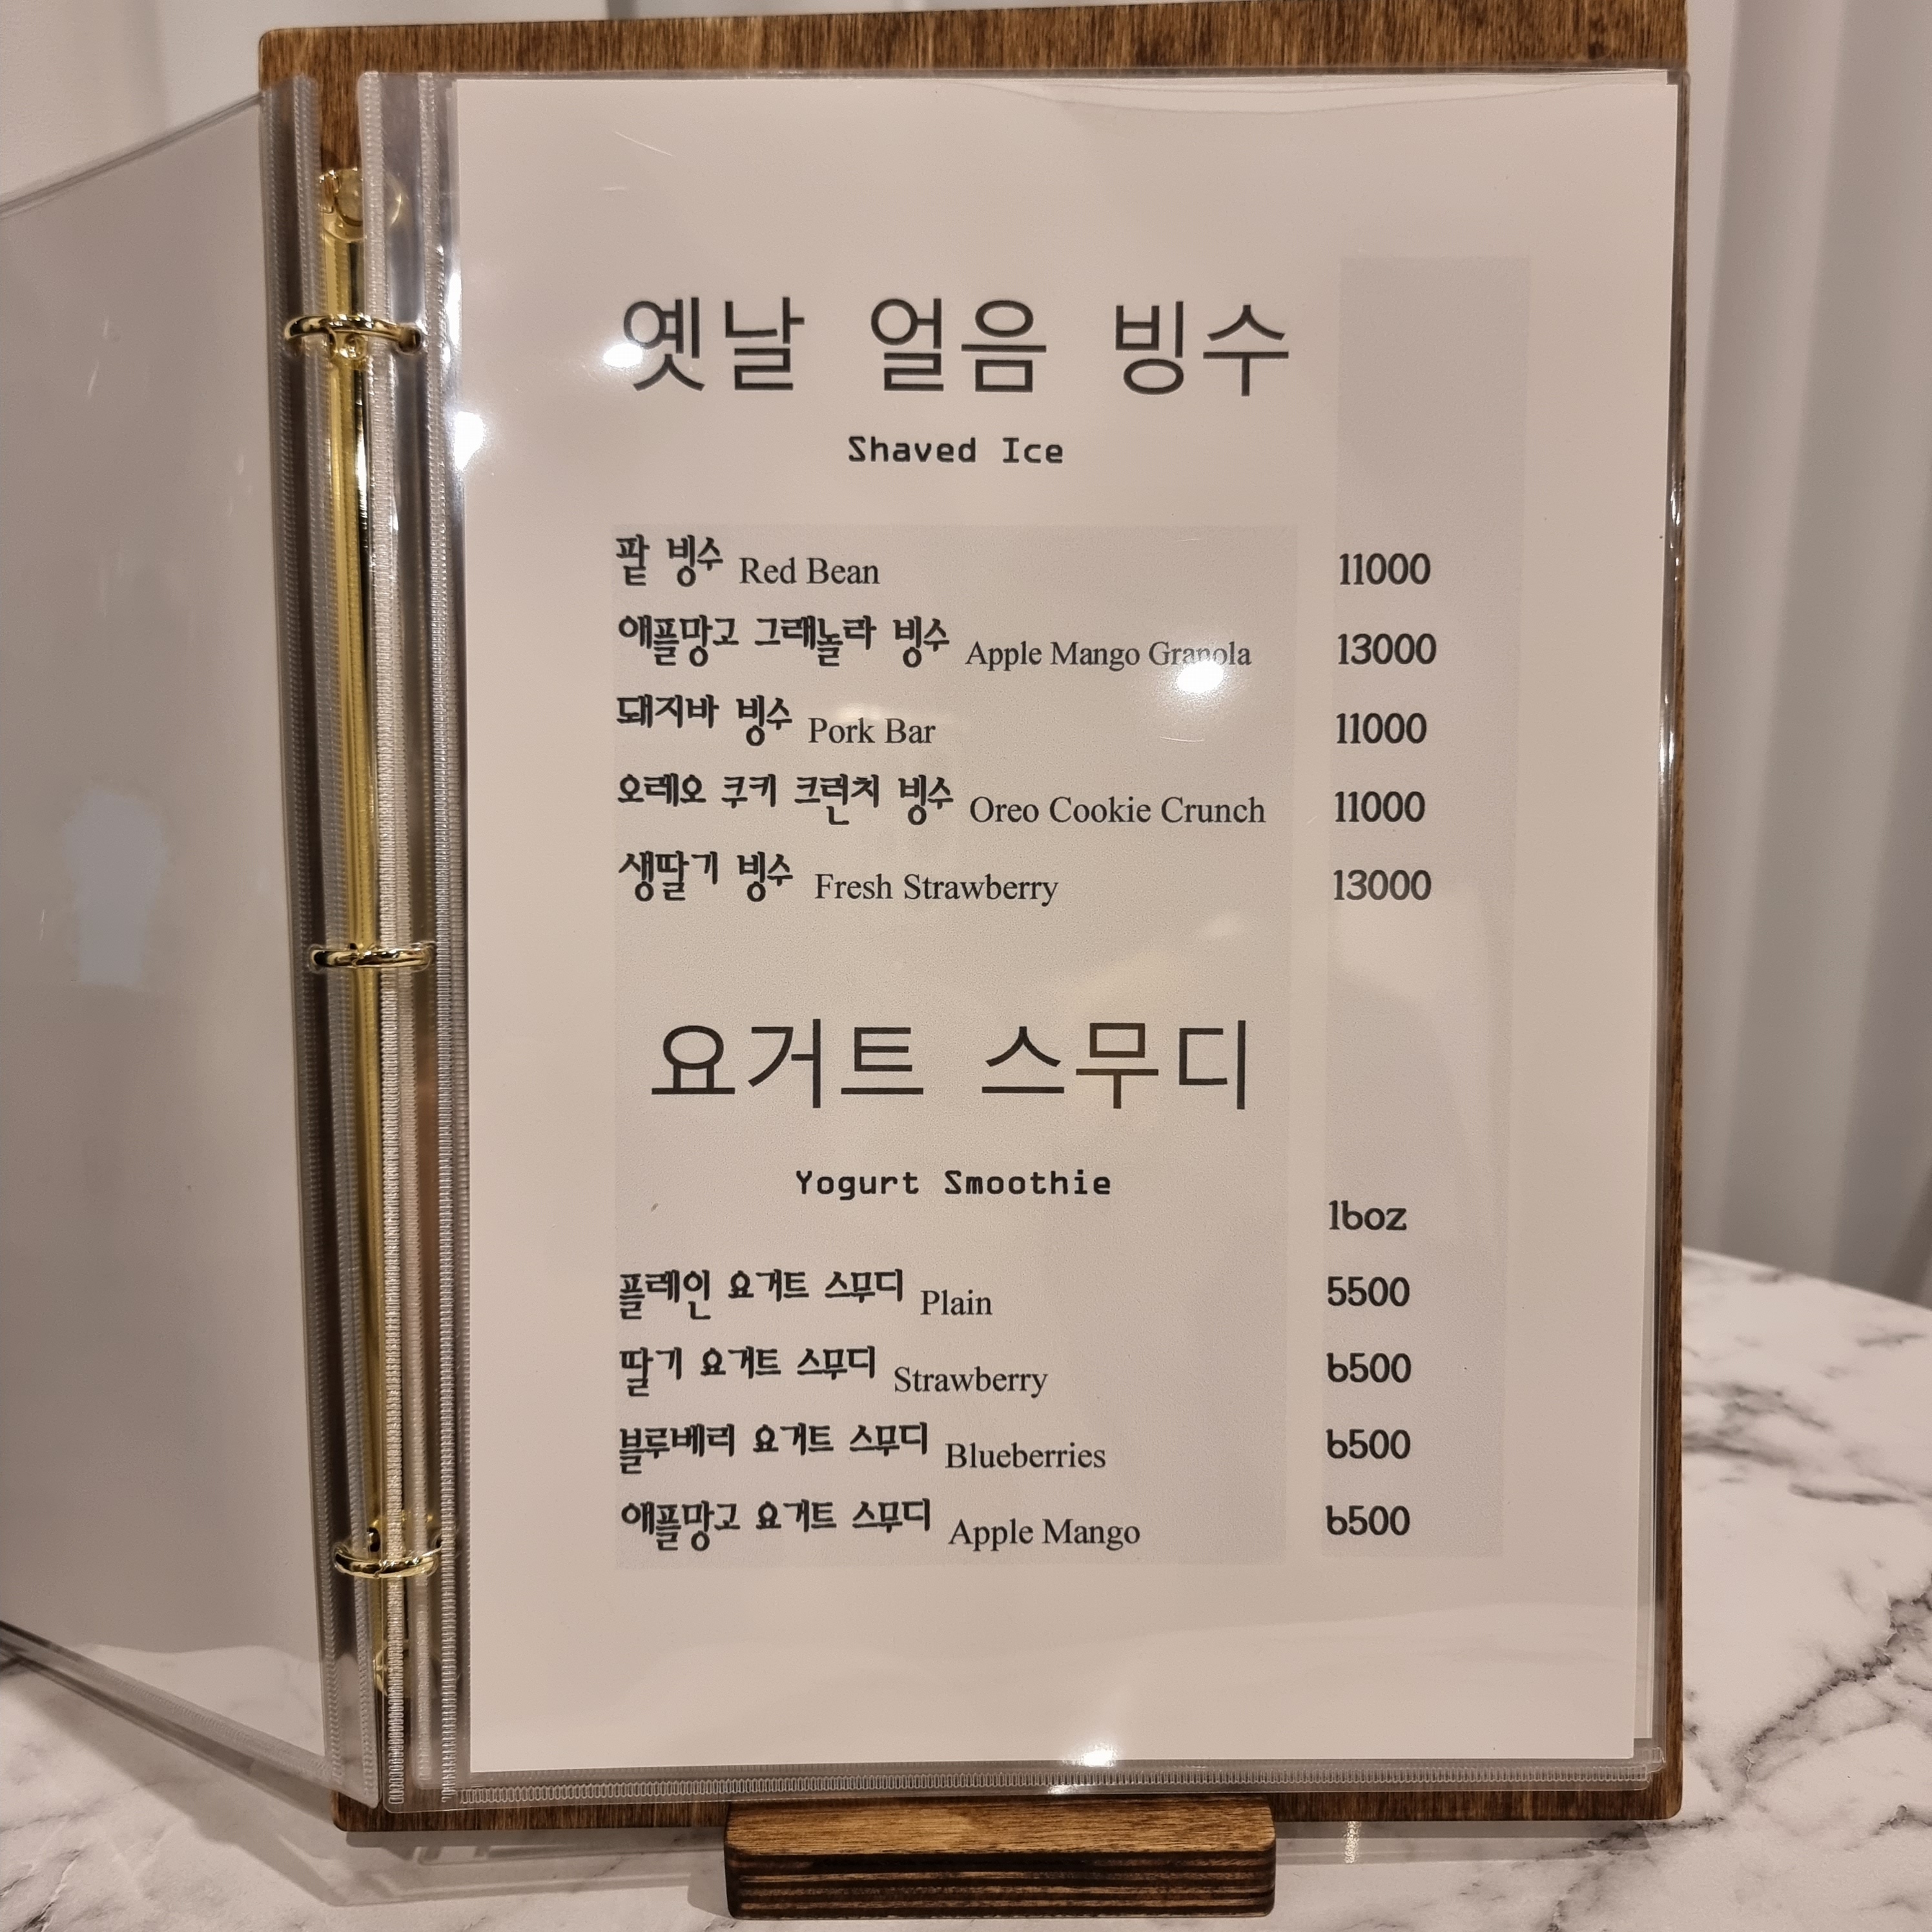 옛날 얼음 빙수
Shaved Ice
팥 빙수 Red Bean 11000
애플망고 그래놀라 빙수 Apple Mango Granola 13000
돼지바 빙수 Pork Bar 11000
오레오 쿠키 크런치 빙수 Oreo Cookie Crunch 11000
생딸기 빙수 Fresh Strawberry 13000
요거트 스무디
Yogurt Smoothie
16oz
플레인 요거트 스무디 Plain 5500
딸기 요거트 스무디 Strawberry 6500
블루베리 요거트 스무디 Blueberries 6500
애플망고 요거트 스무디 Apple Mango 6500